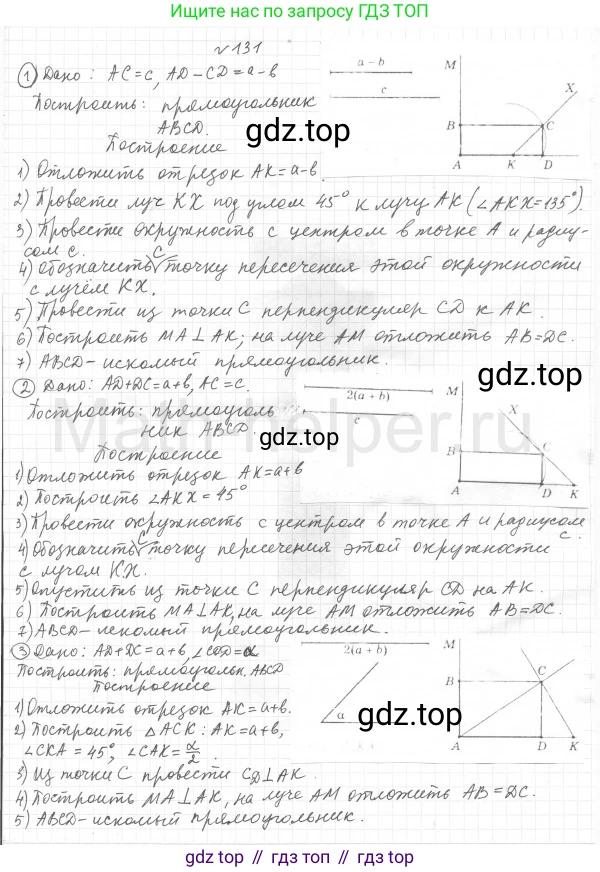 Ищите нас по запросу ГДЗ ТОП
№131
① Дано: AC=c, AD-CD=a-b
Построить: прямоугольник
ABCD.
Построение
a-b
c
M
X
B
C
A
K
D
gdz.top
1) Отложить отрезок AK=a-b
2) Провести луч KX под углом 45° к лучу AK (∠AKX=135°).
3) Провести окружность с центром в точке A и радиу-
сом c.
4) Обозначить C точку пересечения этой окружности
с лучём KX.
5) Провести из точки C перпендикуляр CD к AK.
6) Построить MA⊥AK; на луче AM отложить AB=DC.
7) ABCD-искомый прямоугольник.
② Дано: AD+DC=a+b, AC=c.
Построить: прямоуголь
ник ABCD.
Построение
2(a+b)
c
M
X
B
C
A
D
K
gdz.top
gdz.top
Mathhelper.ru
1) Отложить отрезок AK=a+b
2) Построить ∠AKX=45°
3) Провести окружность с центром в точке A и радиусом
c.
4) Обозначить C точку пересечения этой окружности
с лучом KX.
5) Опустить из точки C перпендикуляр CD на AK.
6) Построить MA⊥AK, на луче AM отложить AB=DC.
7) ABCD-искомый прямоугольник.
③ Дано: AD+DC=a+b, ∠COD=α
Построить: прямоугольн. ABCD
Построение
2(a+b)
α
M
B
C
A
D
K
gdz.top
1) Отложить отрезок AK=a+b.
2) Построить △ACK: AK=a+b,
∠CKA=45°, ∠CAK=α/2.
3) Из точки C провести CD⊥AK.
4) Построить MA⊥AK, на луче AM отложить AB=DC.
5) ABCD-искомый прямоугольник.
gdz.top // гдз.топ // gdz top // гдз топ